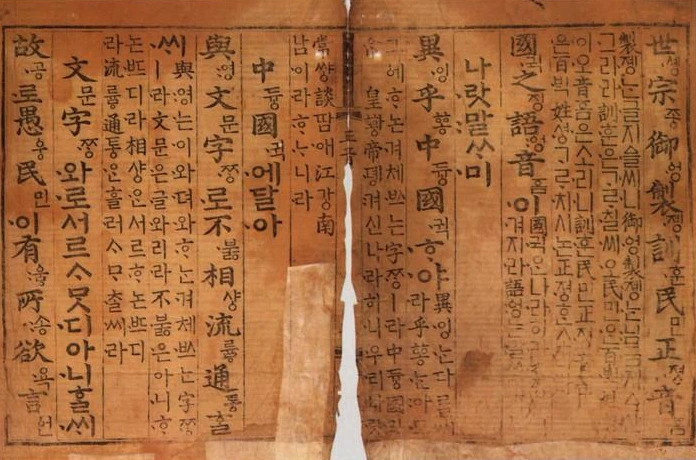 世솅宗조ᇰ御ᅌᅥᆼ製젱訓훈民민正져ᇰ音
製젱는글지ᅀᅳᆯ씨니御ᅌᅥᆼ製젱는님금지
그리라訓훈은ᄀᆞᄅᆞ칠씨오民민은百
이오音ᅙᅳᆷ은소리니訓훈民민正
은百ᄇᆡᆨ姓셔ᇰᄀᆞᄅᆞ치시논正져ᇰ
國귁之징語ᅌᅥᆼ音ᅙᅳᆷ이國귁은나라
겨지라語ᅌᅥᆼ는
나랏말ᄊᆞ미
異잉乎ᅘᅩᆼ中듀ᇰ國귁ᄒᆞ야異잉는다ᄅᆞᆯ씨
라乎ᅘᅩᆼ는아
그ᅌᅦᄒᆞ논겨체ᄡᅳ는字ᄍᆞᆼㅣ라中듀ᇰ國
皇ᅘᅪᇰ帝뎽겨신나라히니우리나랏
常쌰ᇰ談땀애江가ᇰ南
남이라ᄒᆞᄂᆞ니라
中듀ᇰ國귁에달아
與영文문字ᄍᆞᆼ로不부ᇙ相샤ᇰ流류ᇢ通토ᇰᄒᆞᆯ
ᄊᆡ與영는이와뎌와ᄒᆞ논겨체ᄡᅳ는字ᄍᆞᆼ
ㅣ라文문은글와리라不부ᇙ은아니ᄒᆞ
논ᄠᅳ디라相샤ᇰᄋᆞᆫ서르ᄒᆞ논ᄠᅳ디
라流류ᇢ通토ᇰᄋᆞᆫ흘러ᄉᆞᄆᆞᄎᆞᆯ씨라
文문字ᄍᆞᆼ와로서르ᄉᆞᄆᆞᆺ디아니ᄒᆞᆯᄊᆡ
故공로愚ᅌᅮᆼ民민이有우ᇢ所송欲욕言언